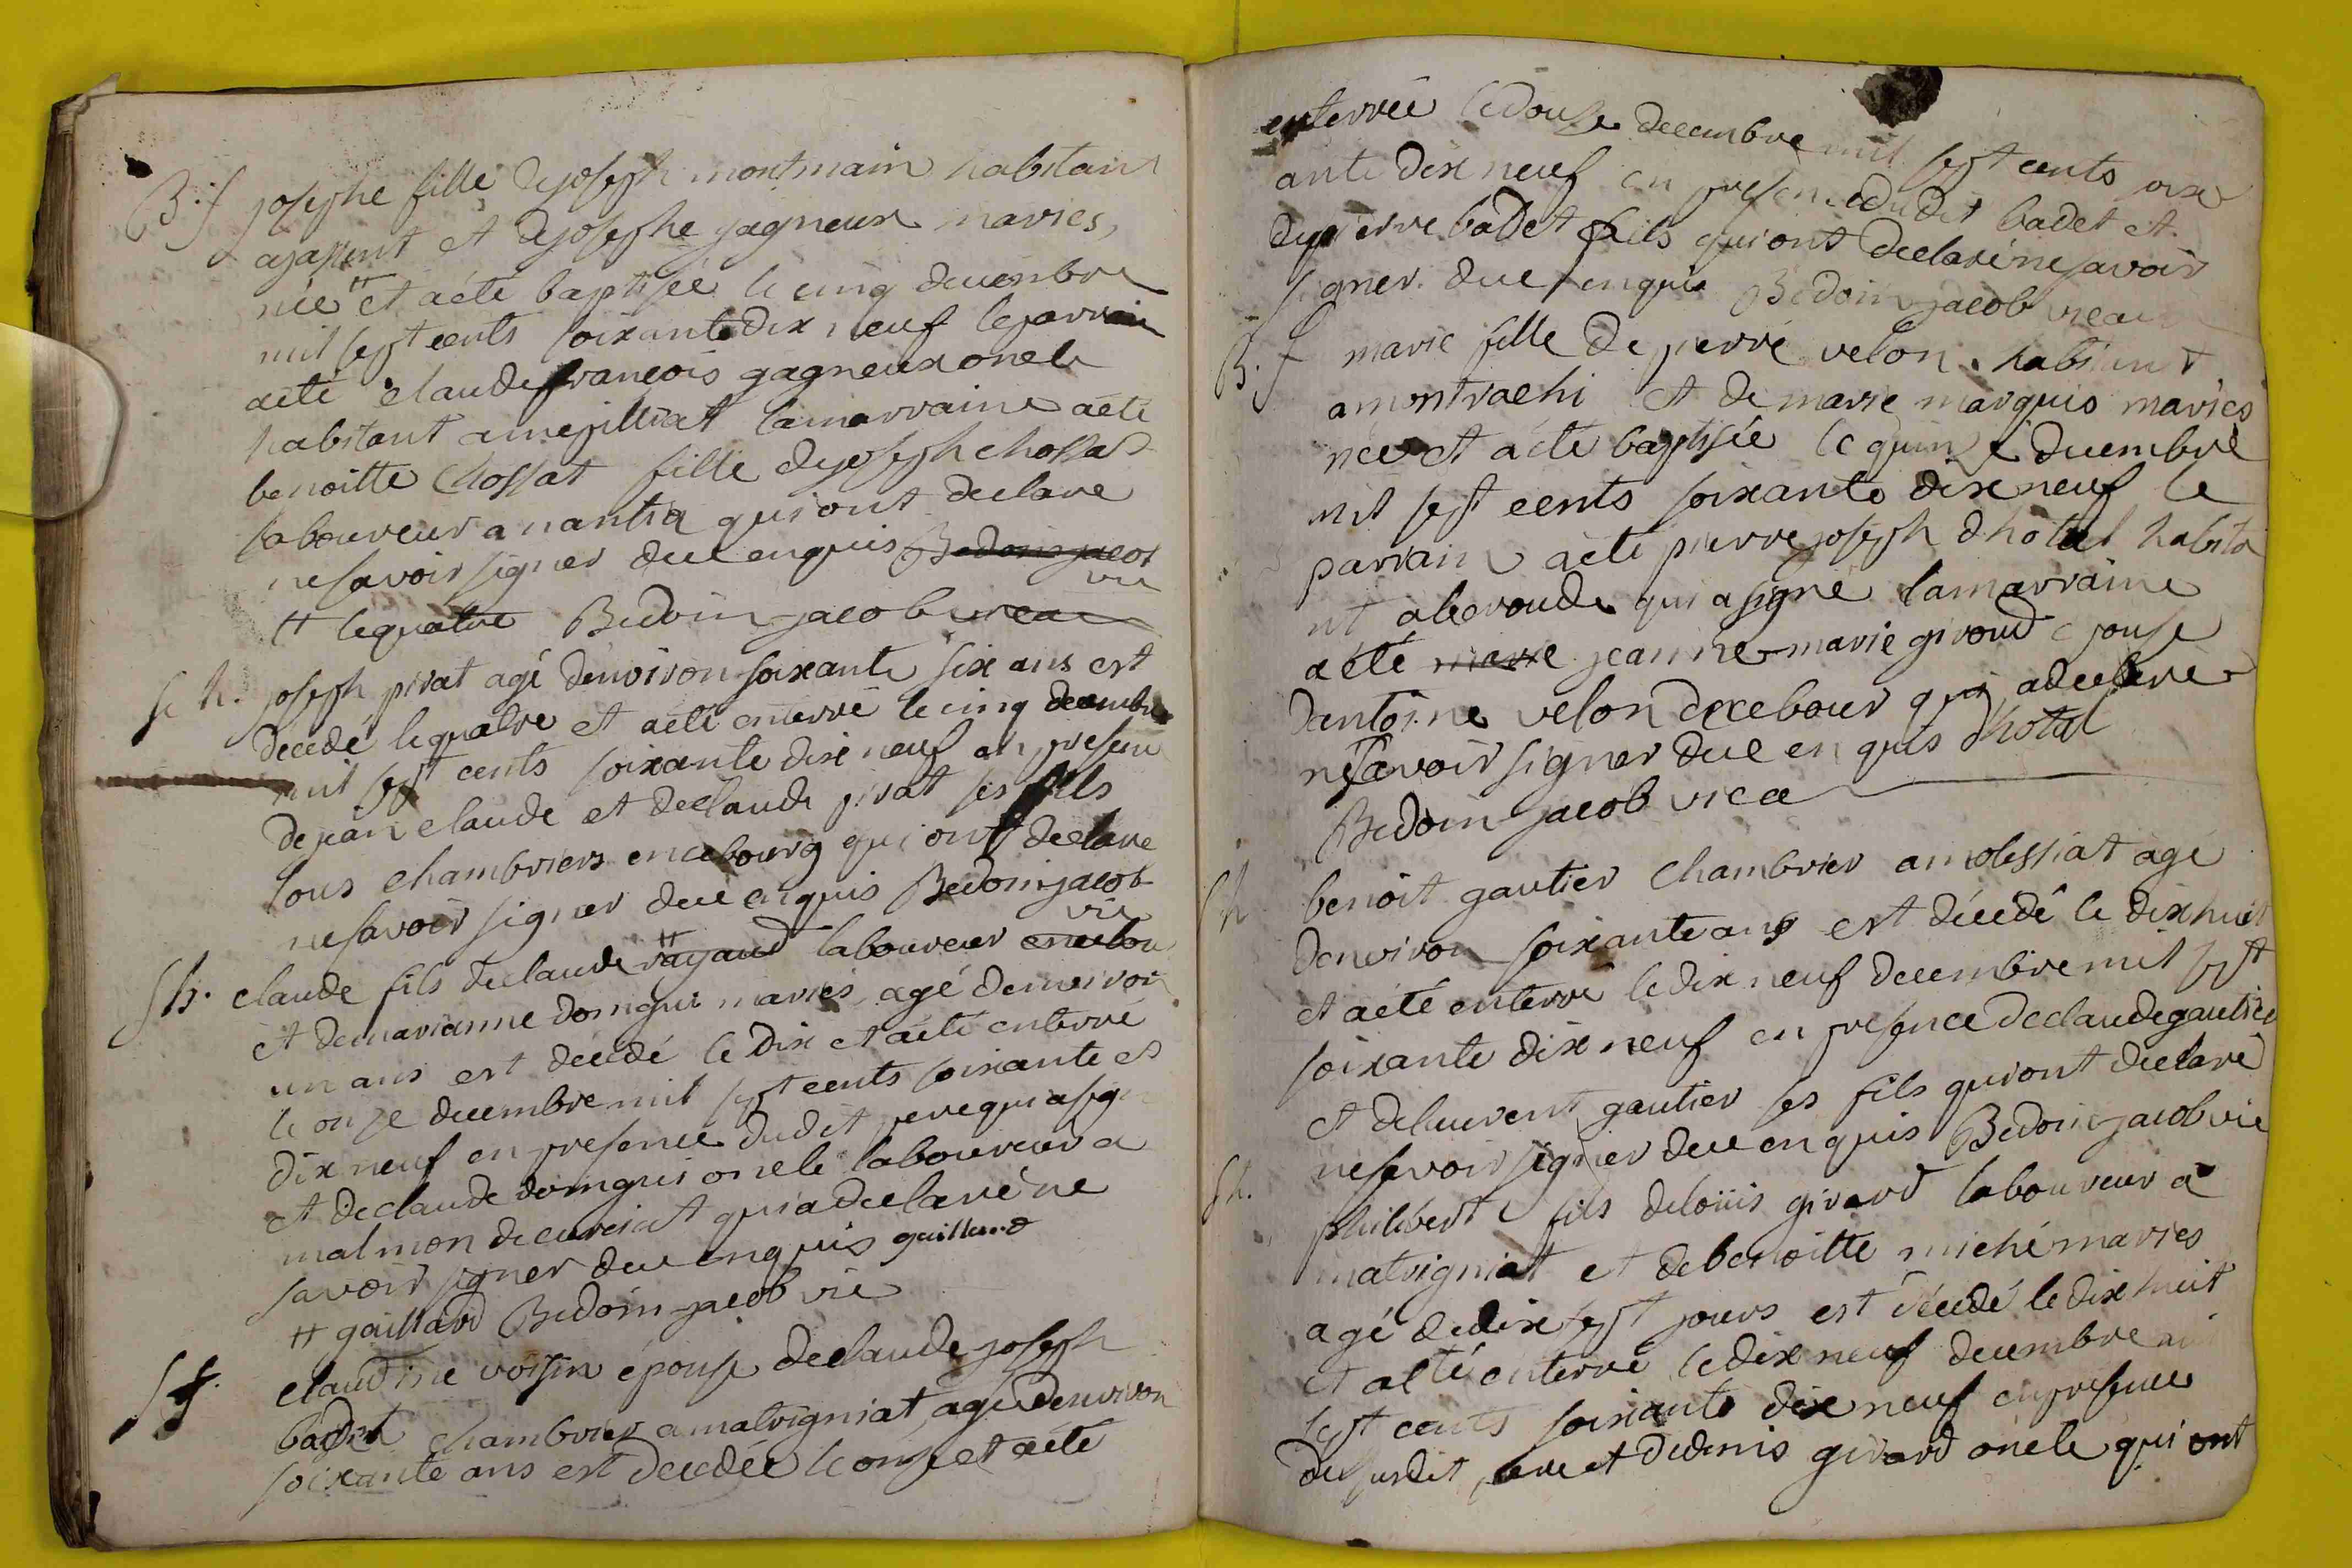 B. f josephe fille de joseph montmain habitant
ajasseint et de josephe gagneux mariés,
née tt et a été baptisée le cinq decembre
mil sept cents soixante dix neuf le parrain
a été claude françois gagneux oncle
habitant a mepilliat la marraine a été
benoitte Chossat fille de joseph chossat
laboureur a nantia qui ont declaré
ne savoir signer duc enquis Bedoin jacob
vic
tt le quatre Bedoin jacob vicaire
S h. joseph pirat agé d'environ soixante six ans est
decedé le quatre et a été enterré le cinq decembre
mil sept cents soixante dix neuf en presence
de jean claude et de claude pirat ses fils
tous chambriers en ce bourg qui ont declaré
ne savoir signer duc enquis Bedoin jacob
vic
S h. claude fils de claude rayand tt laboureur en ce bou
et de marianne domgui mariés, agé d'environ
un ans est decedé le dix et a été enterré
le onze decembre mil sept cents soixante et
dix neuf en presence dudit pere qui a signé
et de claude domgui oncle laboureur a
malmon de curciat qui a declaré ne
savoir signer duc enquis gaillard
tt gaillard Bedoin jacob vic
S f. claudine voisin épouse de claude joseph
badet chambrier a matrigniat agée d'environ
soixante ans est decedée le onze et a été
enterrée le douze decembre mil sept cents soix
ante dix neuf en presence dudit badet et
de pierre badet fils qui ont declaré ne savoir
signer. duc enquis Bedoin jacob vicai
B. f marie fille de pierre velon habitant
a montrachi et de marie marquis mariés
née et a été baptisée le quinze decembre
mil sept cents soixante dix neuf le
parrain a été pierre joseph dhotal habita
nt a beroude qui a signé la marraine
a été marie jeanne-marie giroud epouse
d'antoine velon de ce bour qui a declaré
ne savoir signer duc enquis dhotal
Bedoin jacob vica
S h benoit gautier Chambrier a molissiat agé
d'environ soixante ans est décedé le dix huit
et a été enterré le dix neuf decembre mil sept
soixante dix neuf en presence de claude gautier
et de laurent gautier ses fils qui ont declaré
ne savoir signer duc enquis Bedoin jacob vic
S h. philibert fils de loüis girard laboureur a
matrigniat et de benoitte miché mariés
agé de dix sept jours est décedé le dix huit
et a été enterré le dix neuf decembre mil
sept cents soixante dix neuf en presence
du susdit pere et de denis girard oncle qui ont